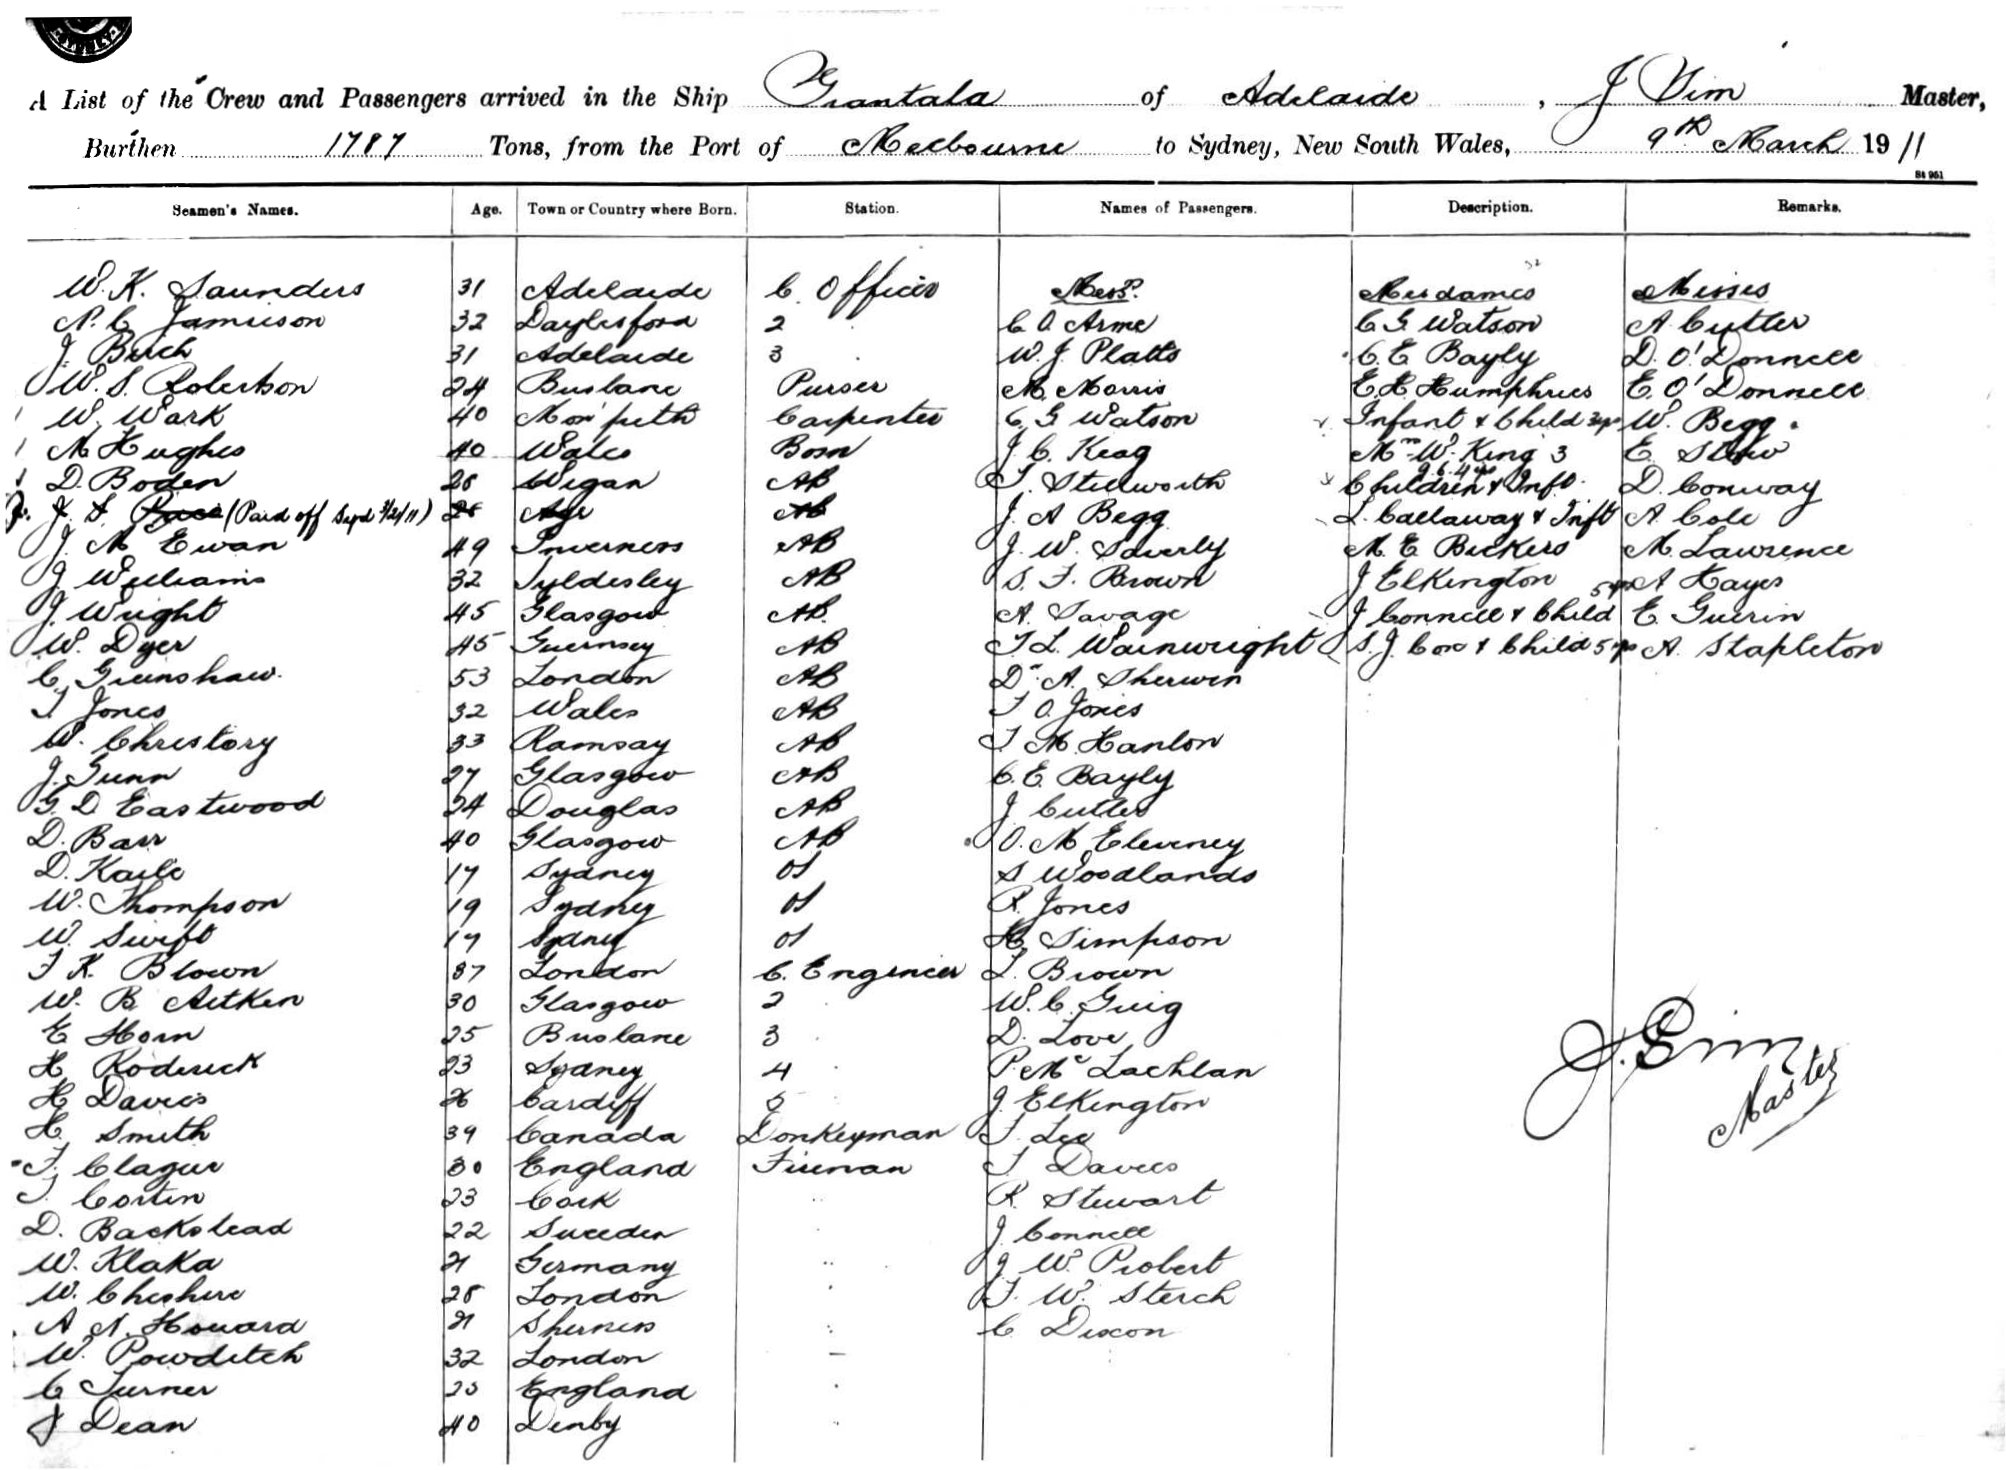 SYDNEY
A List of the Crew and Passengers arrived in the Ship Grantala of Adelaide, J Sim Master,
Burthen 1787 Tons, from the Port of Melbourne to Sydney, New South Wales, 9th March 1911
St 951
Seamen's Names. Age. Town or Country where Born. Station. Names of Passengers. Description. Remarks.
W. K. Saunders 31 Adelaide C. Officer Messrs. Mesdames Misses
N. C. Jamieson 32 Daylesford 2 C. O. Arme C G Watson A Cutler
J. Birch 31 Adelaide 3 W. J. Platts C E Bayly D. O'Donnell
W. S. Robertson 24 Brisbane Purser M. Morris E. H. Humphries E. O'Donnell
W. Wark 40 Morpeth Carpenter C. G Watson Infant & Child W. Begg
M Hughes 40 Wales Bosn J. C. Keag Mrs W. King 3 E.
D. Boden 28 Wigan AB T. Stillworth Children & Inft. D. Conway
J. S. (Paid off Syd 3/2/11) AB J. A Begg L. Callaway & Inft A. Cole
J. M Ewan 49 Inverness AB J. W. Saverly M. E Bickers M. Lawrence
J Williams 32 Tyldesley AB S. F. Brown J Elkington A Hayes
J. Wright 45 Glasgow AB. A. Savage J Connell & Child E. Guerin
W. Dyer 45 Guernsey AB T. L. Wainwright S. J. Cox & Child 5 A. Stapleton
C. Grimshaw. 53 London AB Dr. A. Sherwin
T Jones 32 Wales AB T O. Jones
W. Christory 33 Ramsay AB T M. Hanlon
J. Gunn 27 Glasgow AB C. E. Bayly
G. D Eastwood 24 Douglas AB J Cutler
D. Barr 40 Glasgow AB O. M. Eleveney
D. Karle 17 Sydney OS S Woodlands
W. Thompson 19 Sydney OS R. Jones
W. Swift 17 Sydney OS H. Simpson
T K. Blown 37 London C. Engineer L. Brown
W. B. Aitken 30 Glasgow 2 W. C. Greig
E Horn 25 Brisbane 3 D. Love
H Roderick 23 Sydney 4 P. Mc Lachlan
H Davies 26 Cardiff 5 J. Elkington
H. Smith 39 Canada Donkeyman T. Lee
T. Clague 30 England Fireman T Davies
T. Costin 23 Cork R. Stewart
D. Backstead 22 Sweden J Connell
W. Klaka 21 Germany J W. Probert
W. Cheshire 28 London T. W. Sterch
A N. Howard 21 Sherness C Dixon
W. Powditch 32 London
C Turner 23 England
J Dean 40 Denby
J. Sim
Master